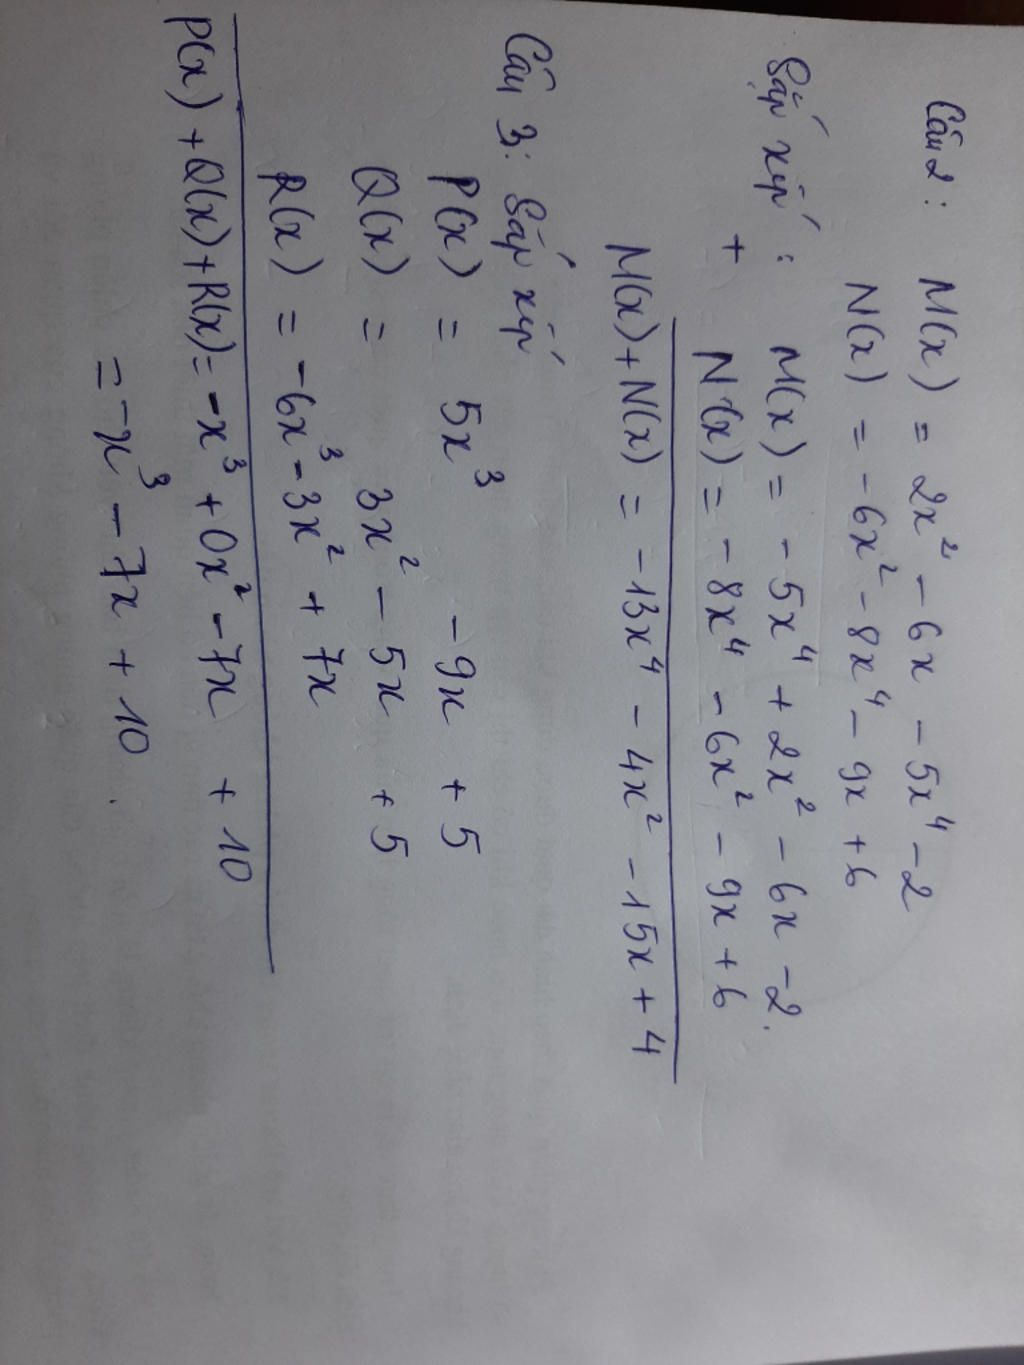 Câu 2: M(x) = 2x² - 6x - 5x⁴ - 2
N(x) = -6x² - 8x⁴ - 9x + 6
Sắp xếp: M(x) = -5x⁴ + 2x² - 6x - 2.
+ N(x) = -8x⁴ - 6x² - 9x + 6
M(x) + N(x) = -13x⁴ - 4x² - 15x + 4
Câu 3: Sắp xếp
P(x) = 5x³ - 9x + 5
Q(x) = 3x² - 5x + 5
R(x) = -6x³ - 3x² + 7x
P(x) + Q(x) + R(x) = -x³ + 0x² - 7x + 10
= -x³ - 7x + 10.